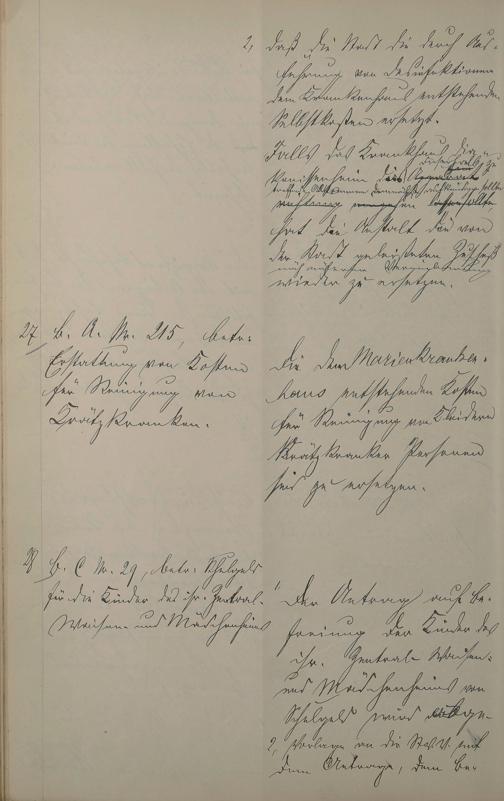 2, daß die Stadt die durch Aus-
führung von Desinfektionen
dem Krankenhaus entstehenden
Selbstkosten ersetzt.
Falls das Krankhaus
hat die Anstalt die von
der Stadt geleisteten Zuschuß
wieder zu ersetzen.
27 B. A. Nr. 215, betr.
Erstattung von Kosten
für Reinigung von
Krätzkranken.
Die dem Marienkranken-
haus entstehenden Kosten
für Reinigung von Kleidern
Krätzkranker Personen
sind zu ersetzen.
28 B. C Nr. 29, betr. Schulgeld
für die Kinder des isr. Zentral-
Waisen- und Mädchenheims
1 Der Antrag auf Be-
freiung der Kinder des
isr. Zentral- Waisen-
und Mädchenheims von
Schulgeld wird abge-
2, Vorlage an die St.V.V. mit
dem Antrage, dem Be-